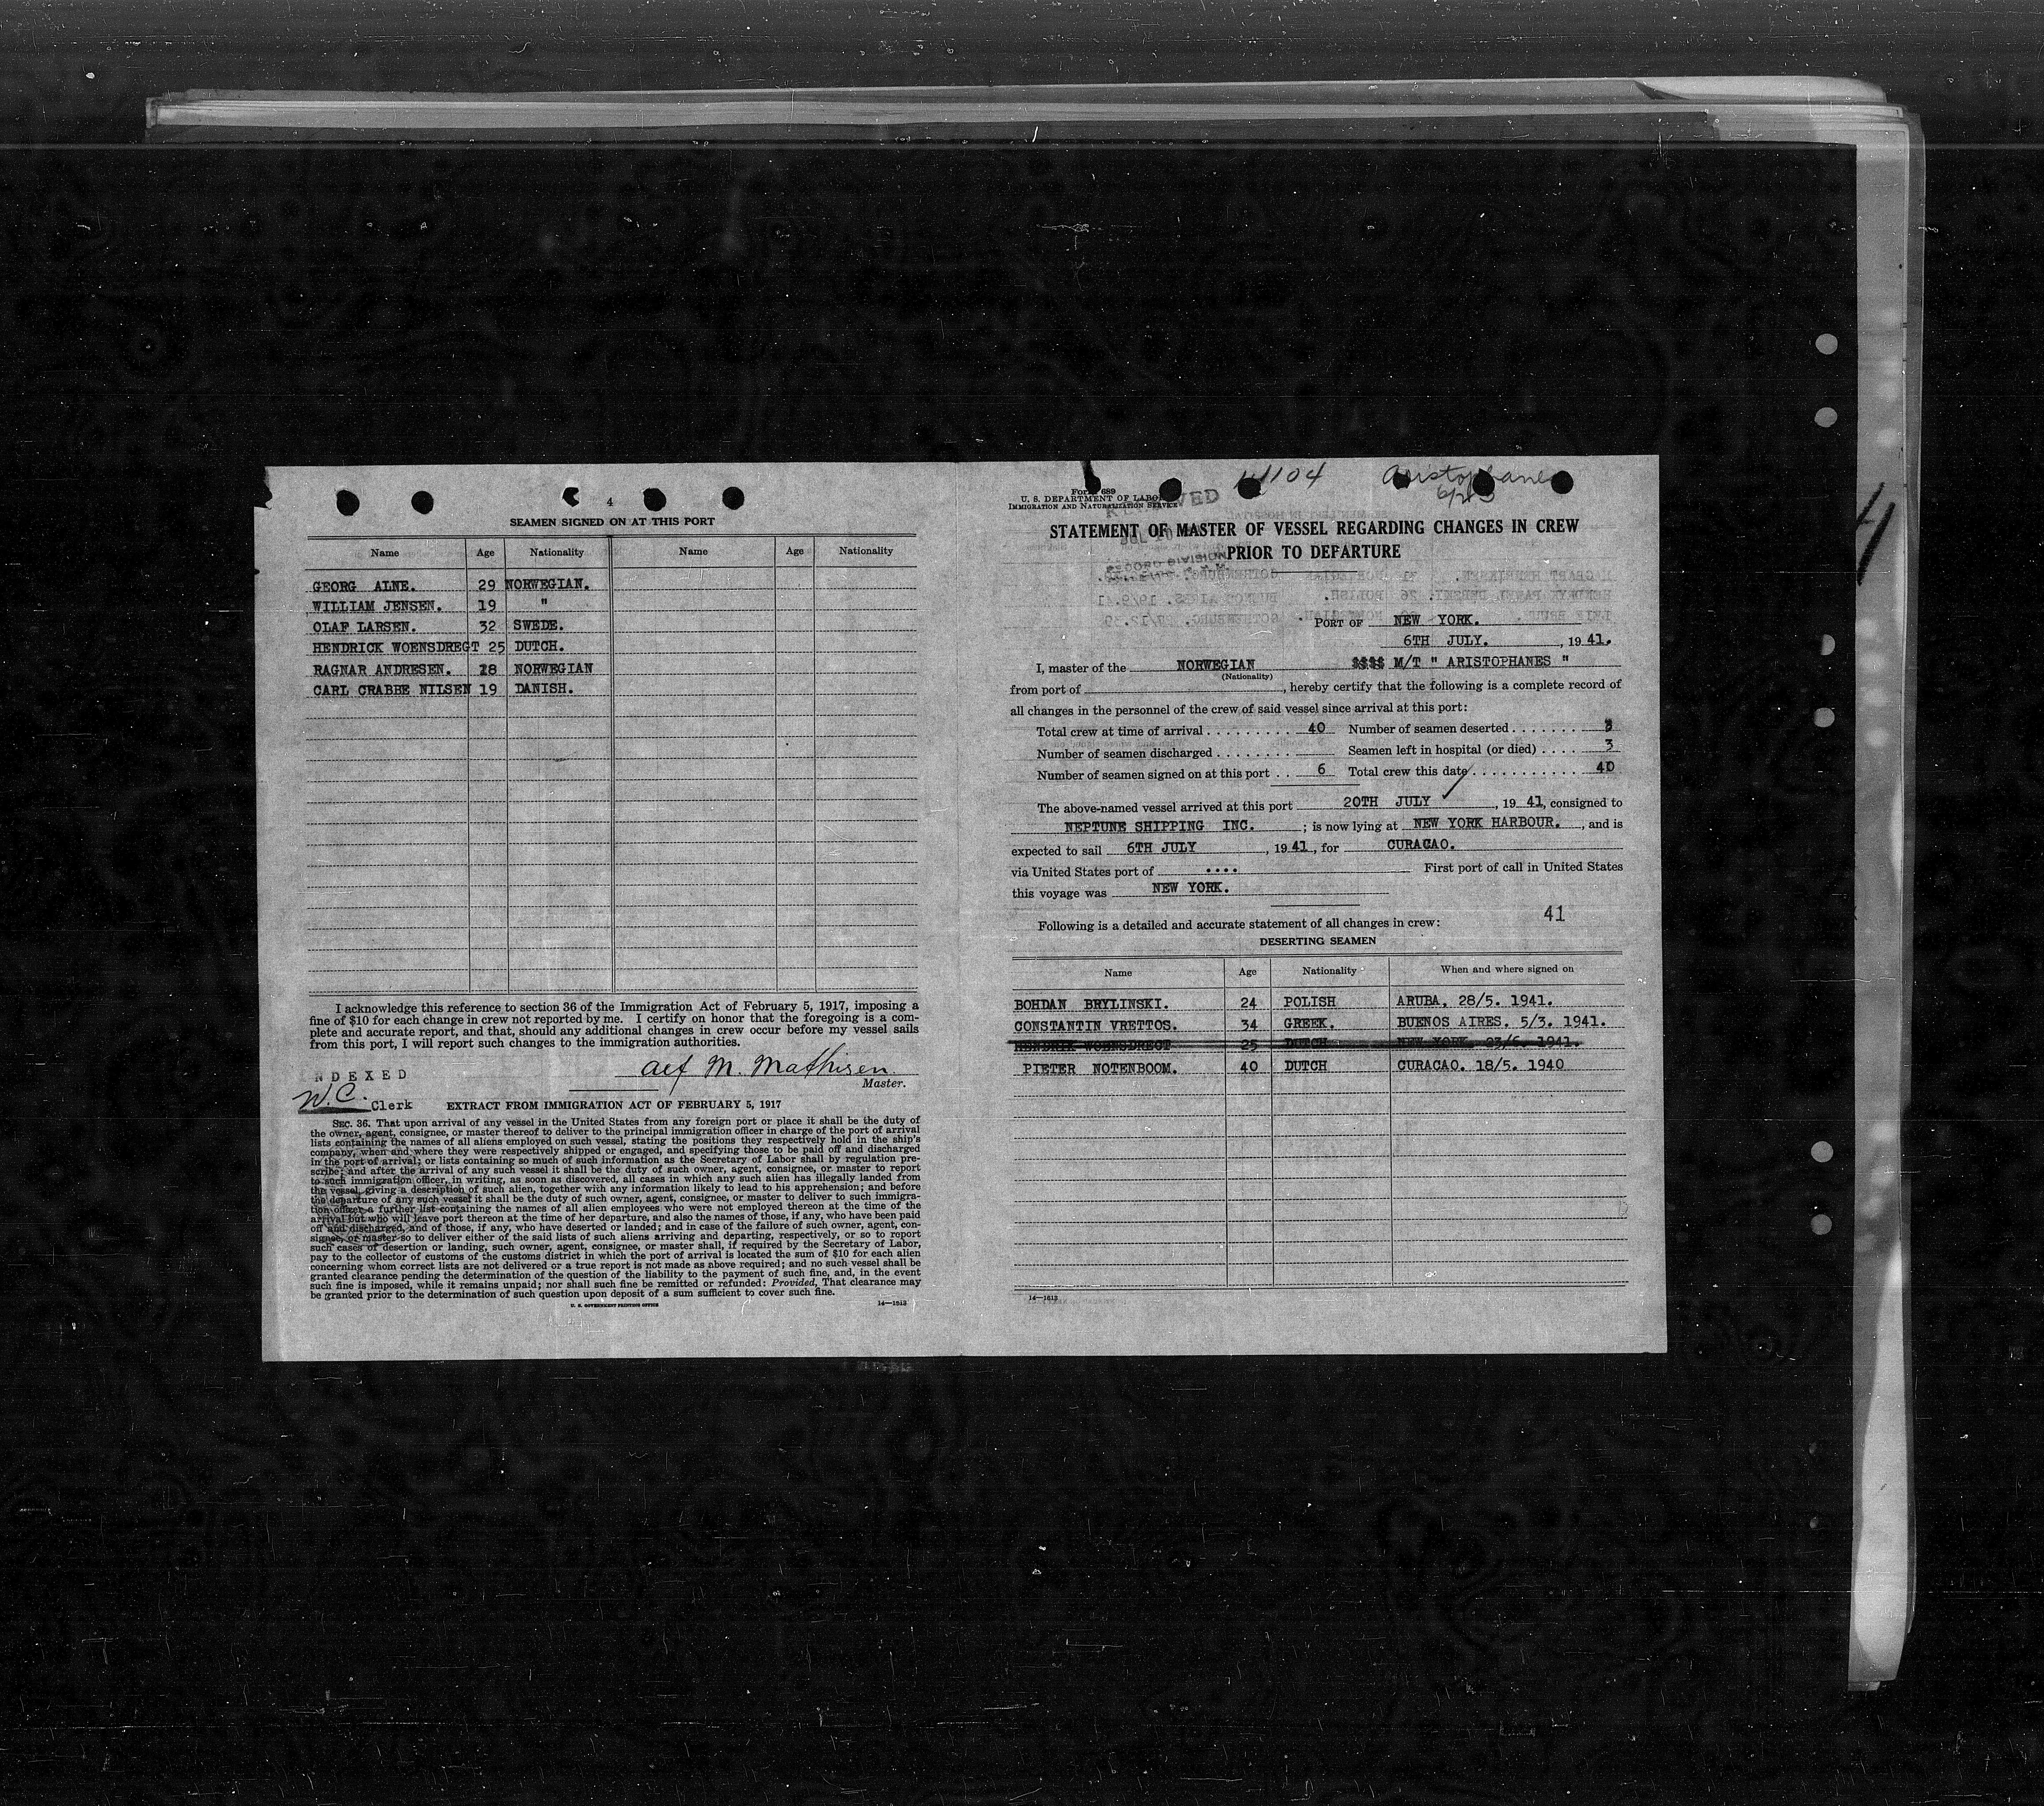 4
SEAMEN SIGNED ON AT THIS PORT
Name Age Nationality Name Age Nationality
GEORG ALNE. 29 NORWEGIAN.
WILLIAM JENSEN. 19 "
OLAF LARSEN. 32 SWEDE.
HENDRICK WOENSDREGT 25 DUTCH.
RAGNAR ANDRESEN. 18 NORWEGIAN
CARL CRABBE NILSEN 19 DANISH.
I acknowledge this reference to section 36 of the Immigration Act of February 5, 1917, imposing a
fine of $10 for each change in crew not reported by me. I certify on honor that the foregoing is a com-
plete and accurate report, and that, should any additional changes in crew occur before my vessel sails
from this port, I will report such changes to the immigration authorities.
Alf M. Mathisen.
Master.
NDEXED
W.C. Clerk
EXTRACT FROM IMMIGRATION ACT OF FEBRUARY 5, 1917
SEC. 36. That upon arrival of any vessel in the United States from any foreign port or place it shall be the duty of
the owner, agent, consignee, or master thereof to deliver to the principal immigration officer in charge of the port of arrival
lists containing the names of all aliens employed on such vessel, stating the positions they respectively hold in the ship's
company, when and where they were respectively shipped or engaged, and specifying those to be paid off and discharged
in the port of arrival; or lists containing so much of such information as the Secretary of Labor shall by regulation pre-
scribe; and after the arrival of any such vessel it shall be the duty of such owner, agent, consignee, or master to report
to such immigration officer, in writing, as soon as discovered, all cases in which any such alien has illegally landed from
the vessel, giving a description of such alien, together with any information likely to lead to his apprehension; and before
the departure of any such vessel it shall be the duty of such owner, agent, consignee, or master to deliver to such immigra-
tion officer a further list containing the names of all alien employees who were not employed thereon at the time of the
arrival but who will leave port thereon at the time of her departure, and also the names of those, if any, who have been paid
off and discharged, and of those, if any, who have deserted or landed; and in case of the failure of such owner, agent, con-
signee, or master so to deliver either of the said lists of such aliens arriving and departing, respectively, or so to report
such cases of desertion or landing, such owner, agent, consignee, or master shall, if required by the Secretary of Labor,
pay to the collector of customs of the customs district in which the port of arrival is located the sum of $10 for each alien
concerning whom correct lists are not delivered or a true report is not made as above required; and no such vessel shall be
granted clearance pending the determination of the question of the liability to the payment of such fine, and, in the event
such fine is imposed, while it remains unpaid; nor shall such fine be remitted or refunded: Provided, That clearance may
be granted prior to the determination of such question upon deposit of a sum sufficient to cover such fine.
U. S. GOVERNMENT PRINTING OFFICE 14—1513
Form 689
U. S. DEPARTMENT OF LABOR
IMMIGRATION AND NATURALIZATION SERVICE
Aristophanes
STATEMENT OF MASTER OF VESSEL REGARDING CHANGES IN CREW
PRIOR TO DEPARTURE
PORT OF NEW YORK.
6TH JULY. , 1941.
I, master of the NORWEGIAN $$$$ M/T " ARISTOPHANES "
(Nationality)
from port of , hereby certify that the following is a complete record of
all changes in the personnel of the crew of said vessel since arrival at this port:
Total crew at time of arrival 40 Number of seamen deserted 3
Number of seamen discharged Seamen left in hospital (or died) 3
Number of seamen signed on at this port 6 Total crew this date 40
The above-named vessel arrived at this port 20TH JULY , 1941, consigned to
NEPTUNE SHIPPING INC. ; is now lying at NEW YORK HARBOUR. , and is
expected to sail 6TH JULY , 1941, for CURACAO.
via United States port of .... First port of call in United States
this voyage was NEW YORK.
41
Following is a detailed and accurate statement of all changes in crew:
DESERTING SEAMEN
Name Age Nationality When and where signed on
BOHDAN BRYLINSKI. 24 POLISH ARUBA. 28/5. 1941.
CONSTANTIN VRETTOS. 34 GREEK. BUENOS AIRES. 5/3. 1941.
HENDRIK WOENSDREGT 25 DUTCH NEW YORK. 23/6. 1941.
PIETER NOTENBOOM. 40 DUTCH CURACAO. 18/5. 1940
14—1513